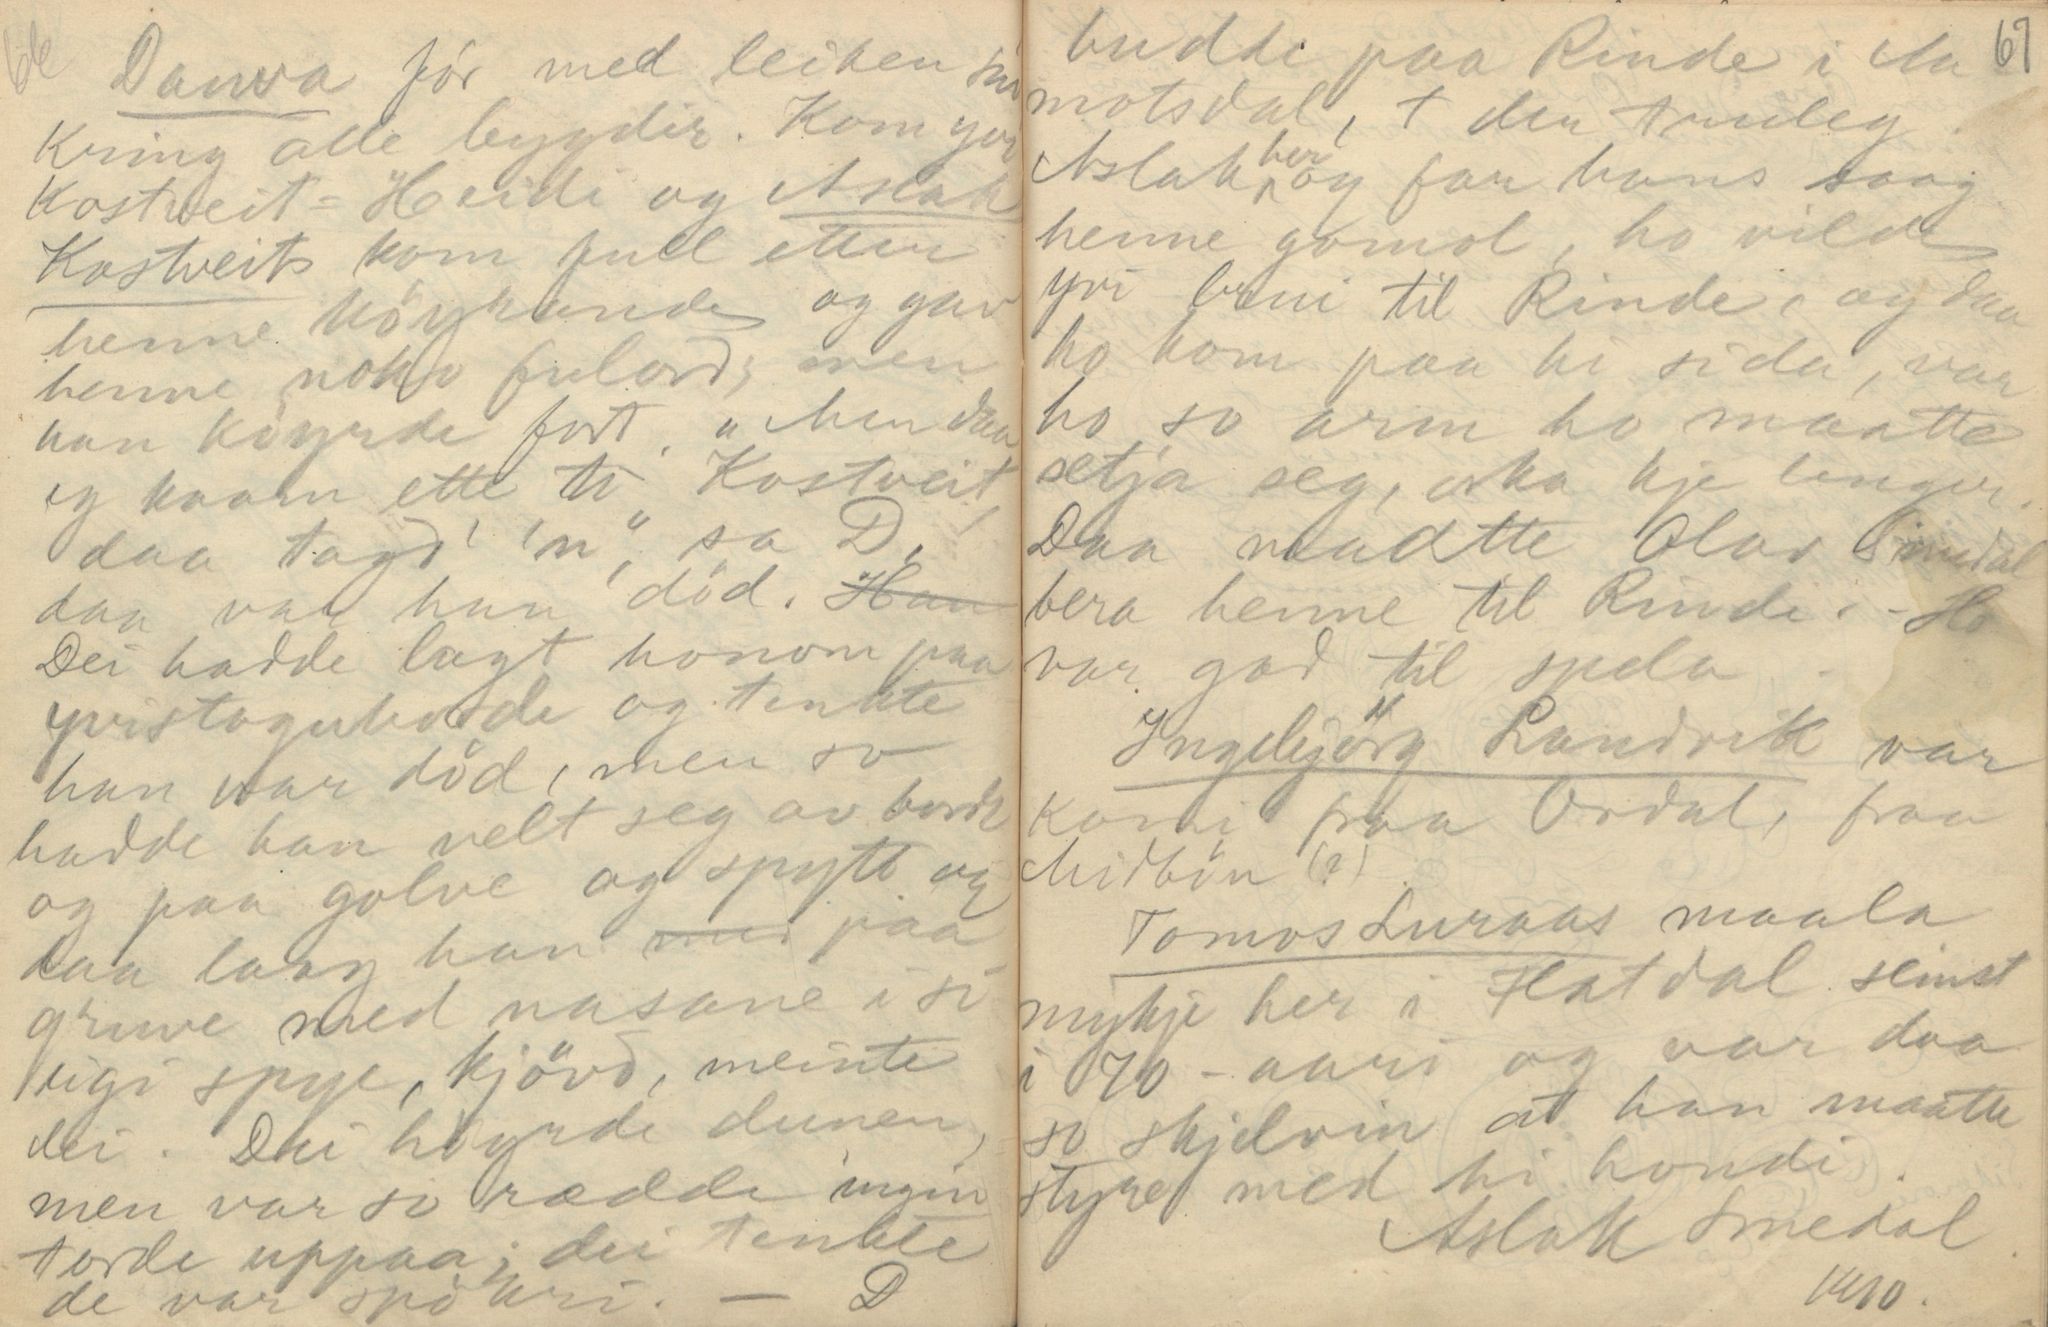 66
Danva fór med leiken sin
kring alle bygdir. Kom yvr
Kostveit-Heidi og Aslak
Kostveit kom full etter
henne köyrande og gav
henne noko fulord; men
han köyrde fort. "Men daa
eg kaam ette ti Kostveit,
daa tagd' 'n", sa D.,
daa var han död. Han
Dei hadde lagt honom paa
yvistoguborde og tenkte
han var död, men so
hadde han velt seg av bordi
og paa golve og spytt og
daa laag han med paa
gruve med nasane i si
eigi spye, kjövd, meinte
dei. Dei höyrde dunen,
men var so rædde ingin
torde uppaa; dei tenkte
de var spökri. — D
67
budde paa Rinde i Aa
motsdal, † der truleg.
Aslak her og far hans saag
henne gomol, ho vilde
yvi brui til Rinde, og daa
ho kom paa hi sida, var
ho so arm ho maatte
setja seg, orka kje lenger.
Daa maatte Olav Smedal
bera henne til Rinde. - Ho
var god til spela -
Ingebjörg Landvik var
komi fraa Ordal, fraa
Midbön (?)
Tomos Luraas maala
mykje her i Flatdal seinst
i 70-aari og var daa
so skjelvin at han maatte
styre med hi hondi.
Aslak Smedal
1910.